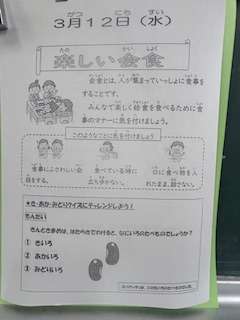 がつ にち すい
3月12日(水)
たの かいしょく
楽しい会食
会食とは、人が集まっていっしょに食事を
することです。
みんなで楽しく給食を食べるために食
事のマナーに気を付けましょう。
このようなことに気を付けましょう
食事にふさわしい会
話をする。
食べている時に
立ち歩かない。
口に食べ物を入
れたまま、話さない。
★き・あか・みどりクイズにチャレンジしよう!
もんだい
きんときまめは、はたらきでわけると、なにいろのたべものでしょうか?
① きいろ
② あかいろ
③ みどりいろ